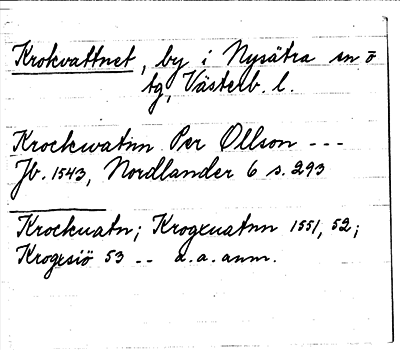 Krokvattnet, by i Nysätra sn ö
tg, Västerb. l.
Krockwatnn Per Ollson ---
Jb. 1543, Nordlander 6 s. 293
Krockuatn; Krogxuatnn 1551, 52;
Krogesiö 53 -- a.a. anm.